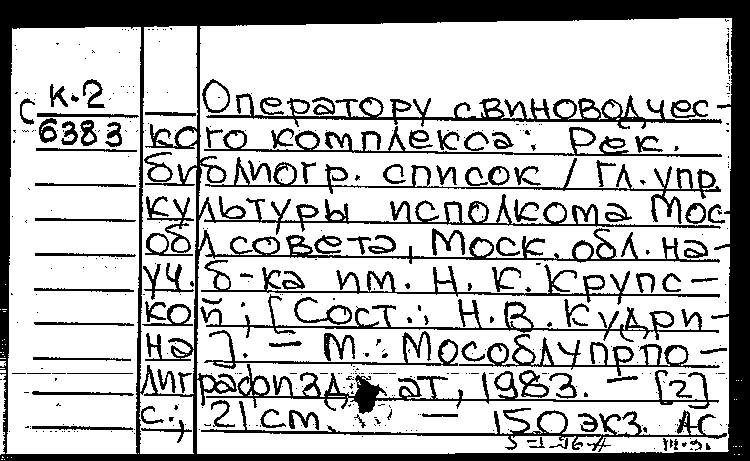 К.2
С 6383
Оператору свиноводчес-
кого комплекса: Рек.
библиогр. список / Гл. упр.
культуры исполкома Мос-
облсовета, Моск. обл. на-
уч. б-ка им. Н. К. Крупс-
кой; [Сост.: Н. В. Кудри-
на]. — М.: Мособлупрпо-
лиграфиздат, 1983. — [2]
с.; 21 cm. — 150 экз. АС